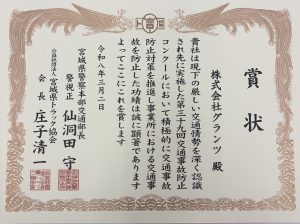 賞状
株式会社グランツ 殿
貴社は現下の厳しい交通情勢を深く認識
され先に実施した第三十九回交通事故防止
コンクールにおいて積極的に交通事故
防止対策を推進し事業所における交通事
故を防止した功績は誠に顕著であります
よってここにこれを賞します
令和八年三月二日
宮城県警察本部交通部長
警視正 仙洞田 守
公益社団法人 宮城県トラック協会
会長 庄子清一